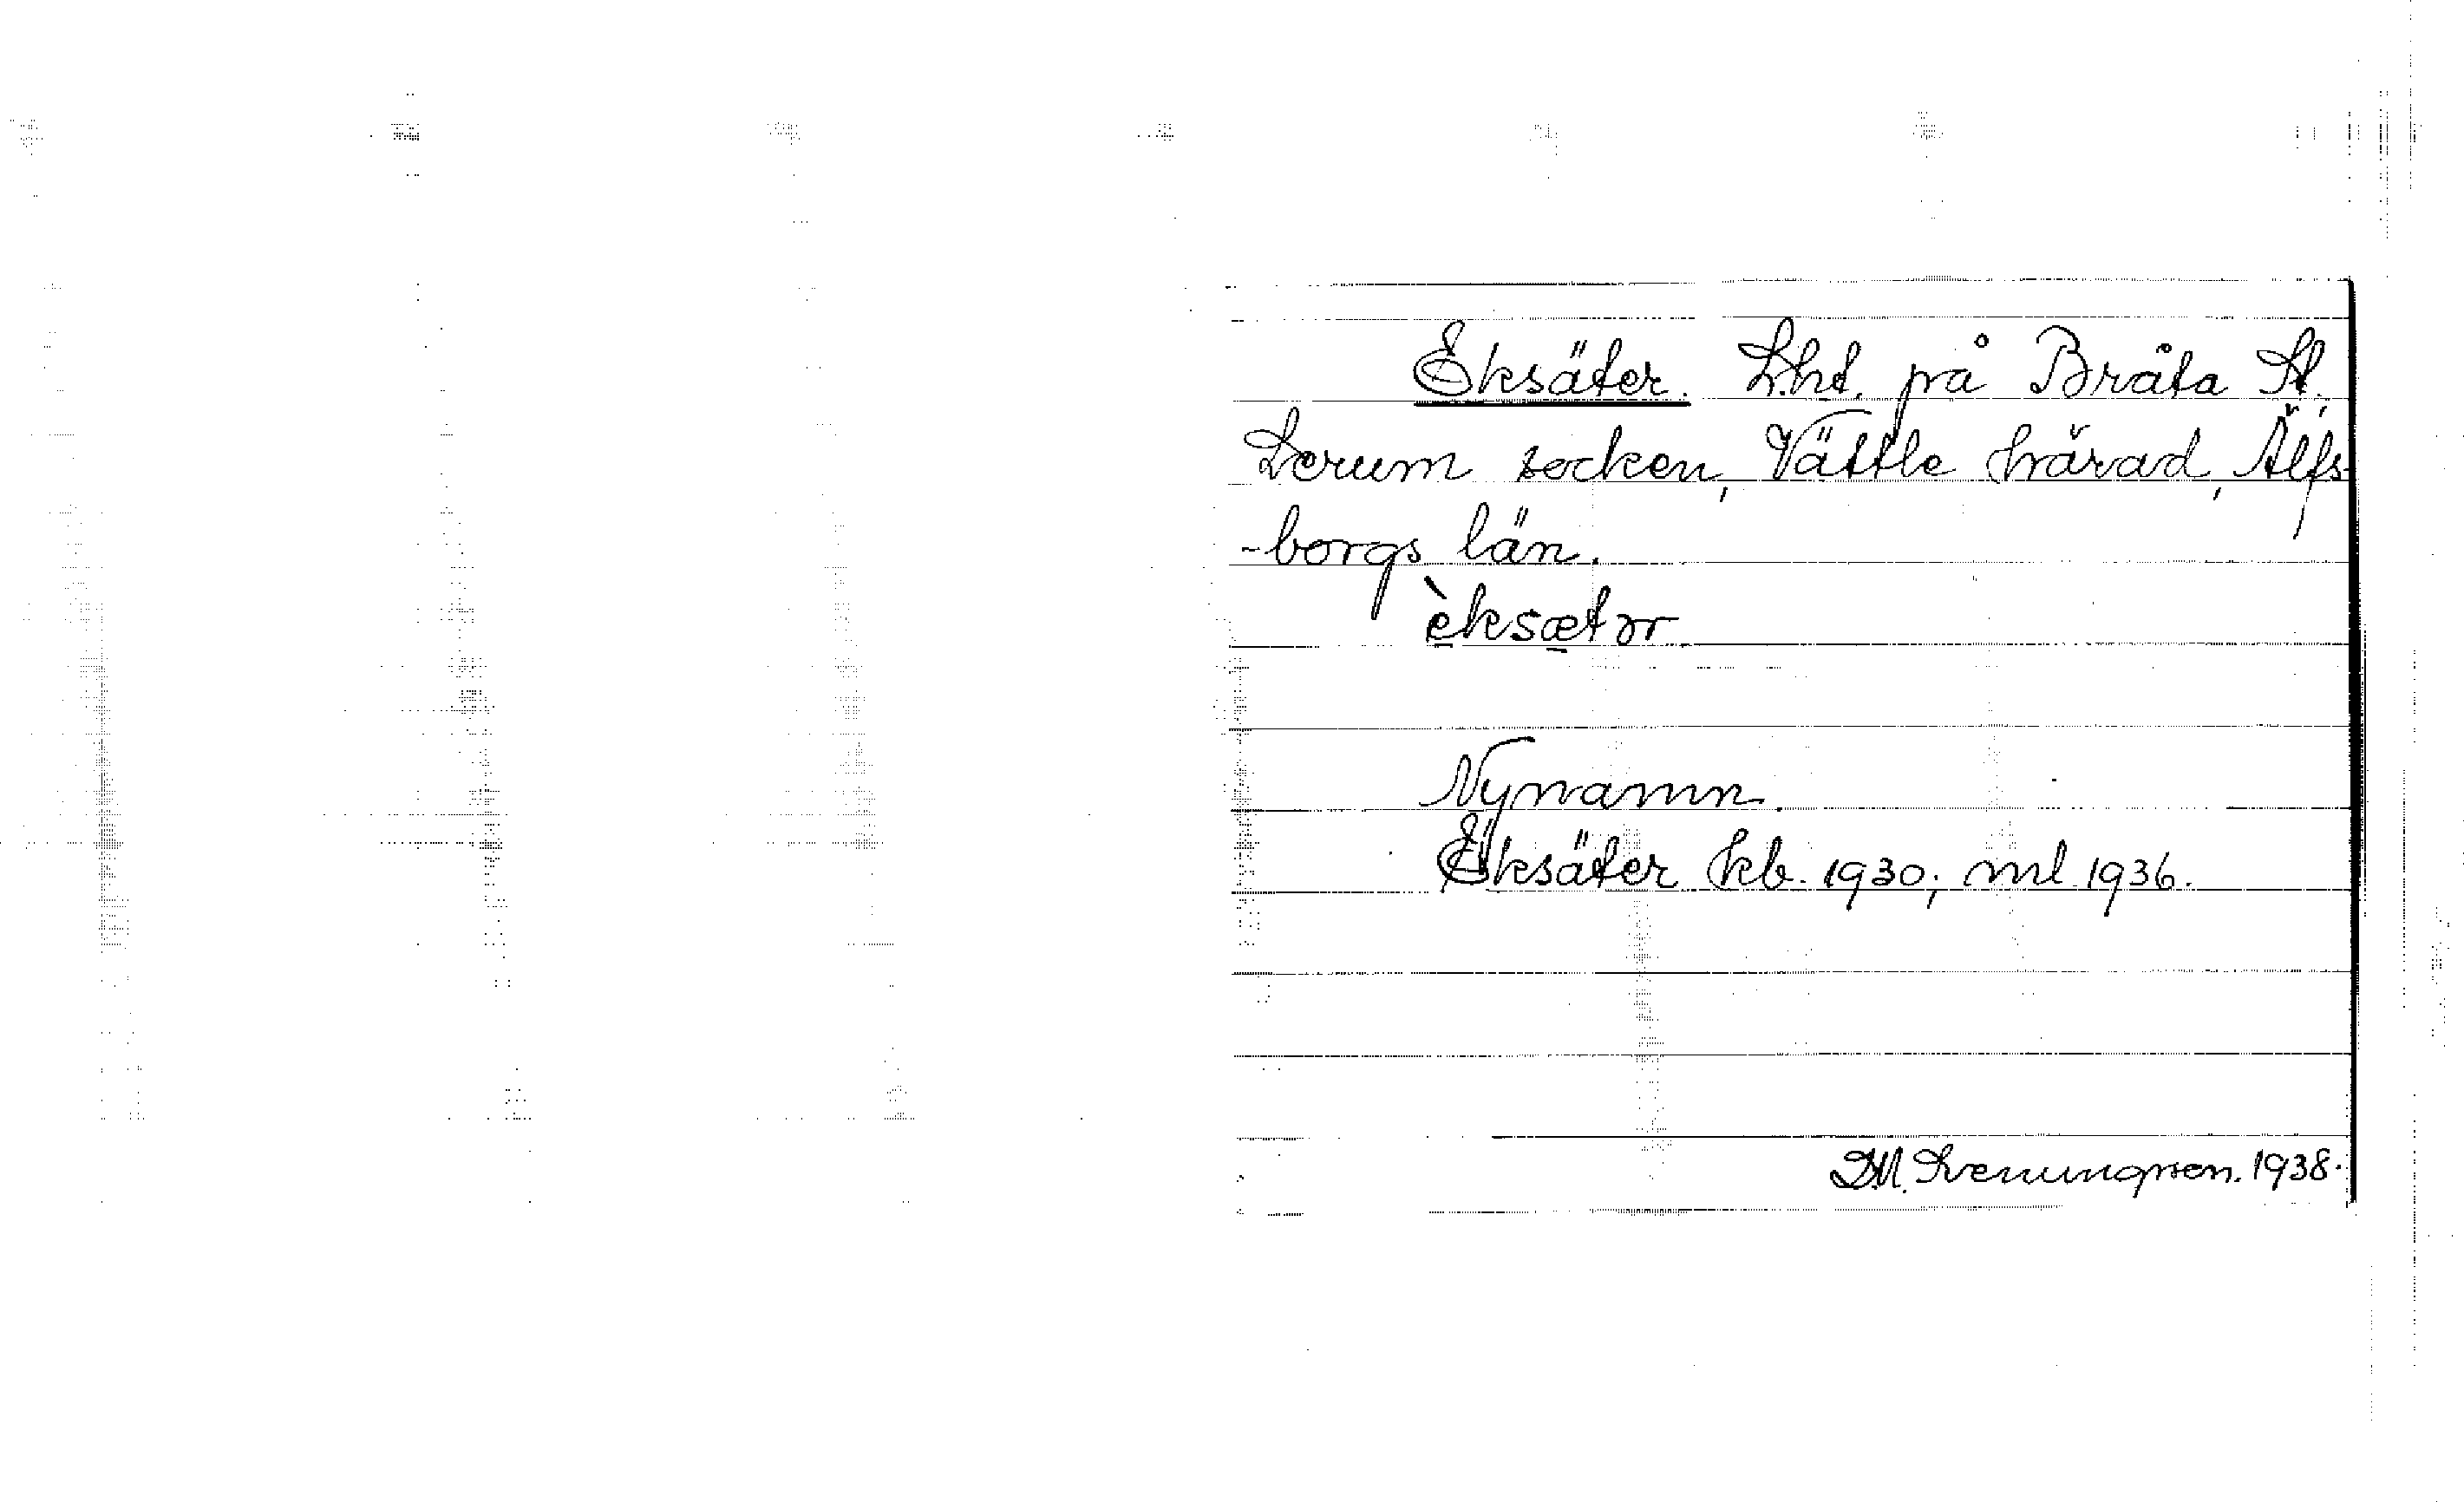 Eksäter. Lht. på Bråta St.
Lerum socken, Vättle härad, Älfs-
-borgs län.
èksætər
Nynamn.
Eksäter kb. 1930; ml 1936.
D.M. Svenungsson. 1938.